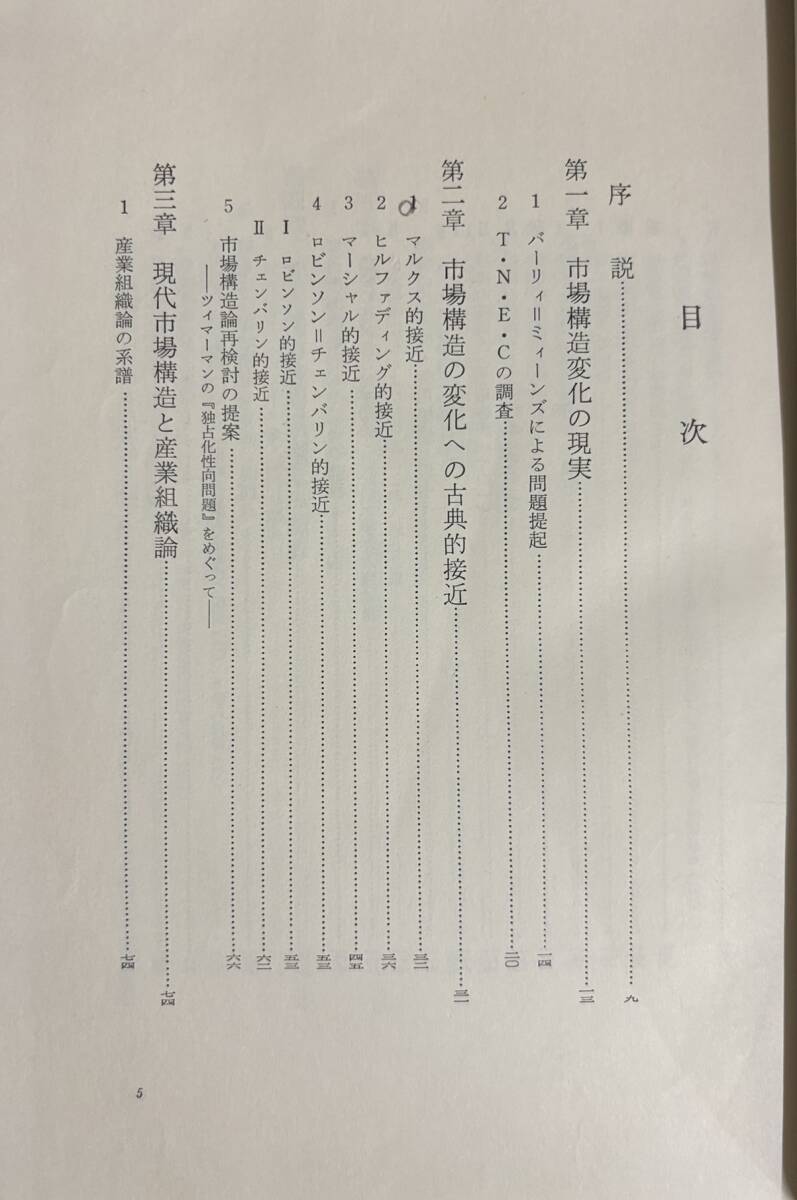 目次
序説……九
第一章 市場構造変化の現実……一三
1 バーリィ＝ミィーンズによる問題提起……一四
2 T・N・E・Cの調査……二〇
第二章 市場構造の変化への古典的接近……三一
1 マルクス的接近……三二
2 ヒルファディング的接近……三六
3 マーシャル的接近……四五
4 ロビンソン＝チェンバリン的接近……五三
Ⅰ ロビンソン的接近……五三
Ⅱ チェンバリン的接近……六二
5 市場構造論再検討の提案……六六
――ツィマーマンの『独占化性向問題』をめぐって――
第三章 現代市場構造と産業組織論……七四
1 産業組織論の系譜……七四
5